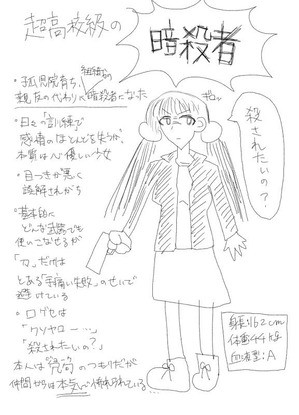 超高校級の
暗殺者
・孤児院育ち、組織の
親友の代わりに暗殺者になった
・日々の訓練で
感情のほとんどを失うが、
本質は心優しい少女
・目つきが悪く
誤解されがち
・基本的に
どんな武器でも
使いこなせるが
「刀」だけは
とある「手痛い失敗」のせいで
避けている
・口グセは
「クソヤロー…」
「殺されたいの？」
本人は"脅し"のつもりだが
仲間からは本気で怖れられている
殺されたいの？
身長162cm
体重44kg
血液型:A